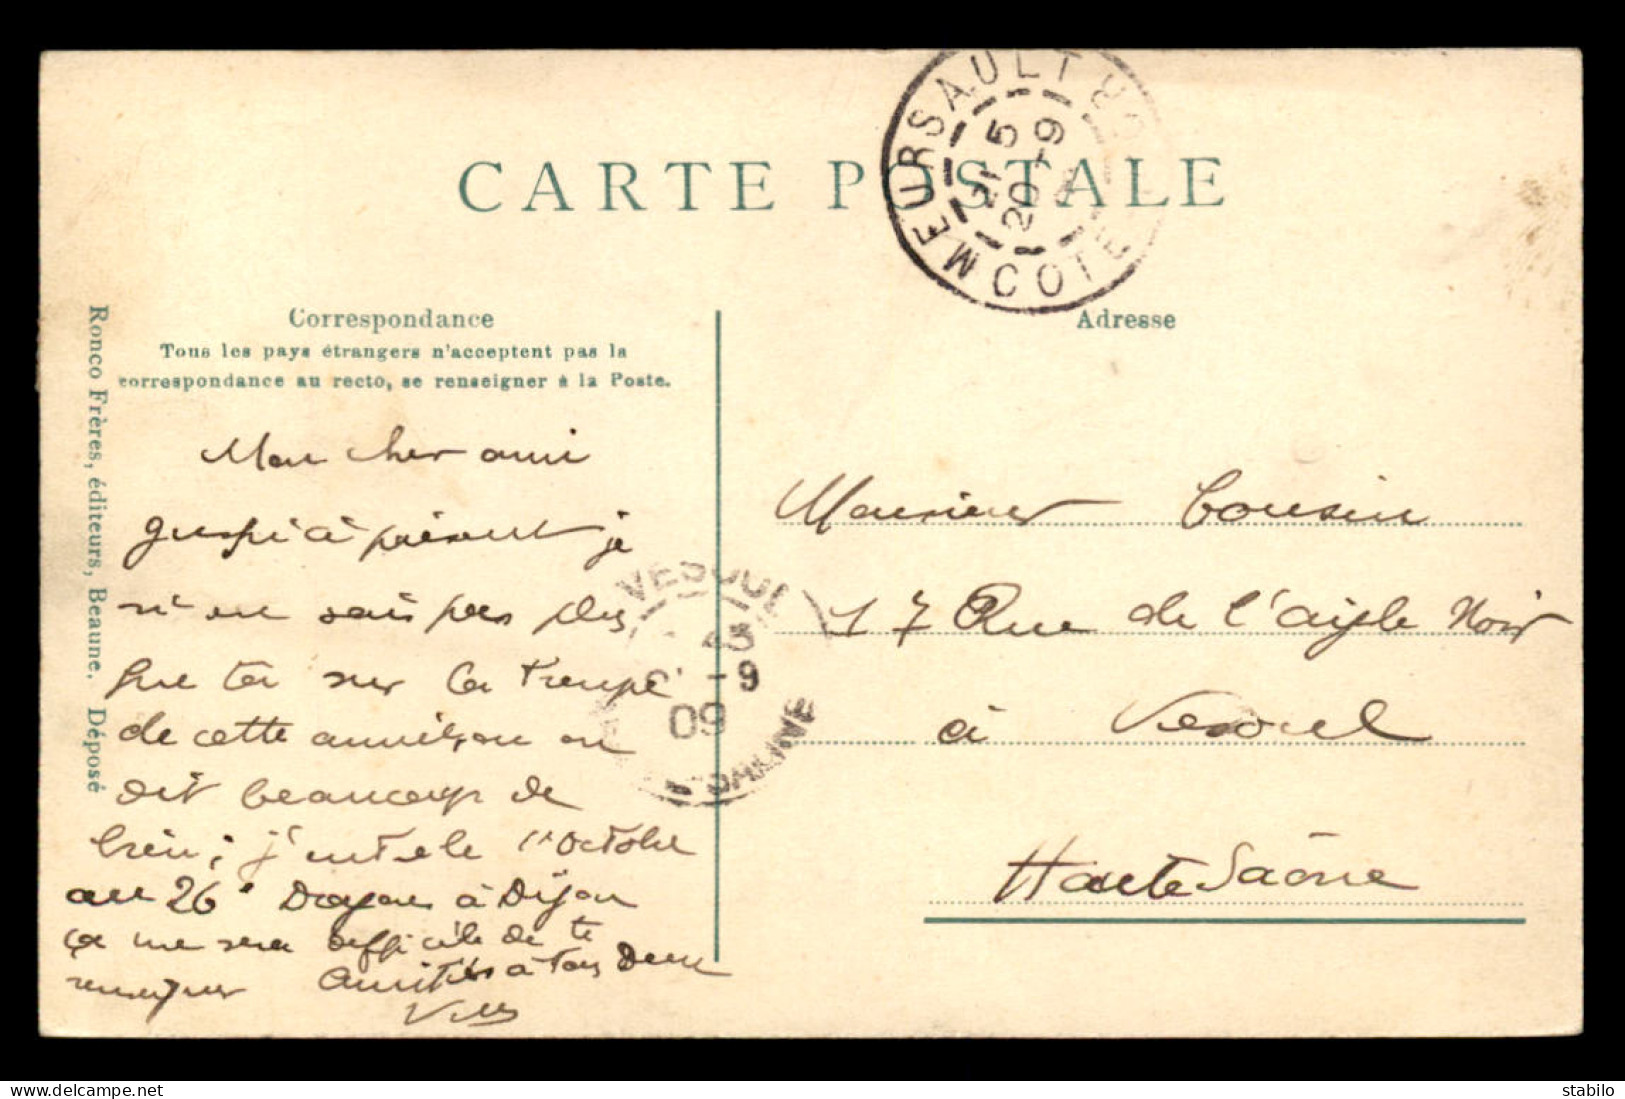 CARTE POSTALE
MEURSAULT COTE D'OR
21 5
20 -9
Correspondance
Tous les pays étrangers n'acceptent pas la
correspondance au recto, se renseigner à la Poste.
Ronco Frères, éditeurs, Beaune. Déposé
Mon cher ami
jusqu'à présent je
n'en sais pas plus
que toi sur la troupe
de cette année, on en
dit beaucoup de
bien; j'entre le 1er octobre
au 26e Dragons à Dijon
ça me sera difficile de te
renseigner Amitiés à tous Deux
VESOUL
-9
09
SAONE
Adresse
Monsieur Cousin
17 Rue de l'aigle Noir
à Vesoul
Haute Saône
delcampe.net
stabilo